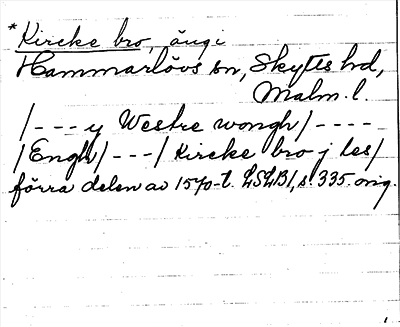 * Kircke bro, ängi
Hammarlövs sn, Skytts hd,
Malm. l.
/--- y Westre wongh/----
/Engh/---/ Kircke bro j les/
förra delen av 1570-t. LSLB1, s. 335. orig.